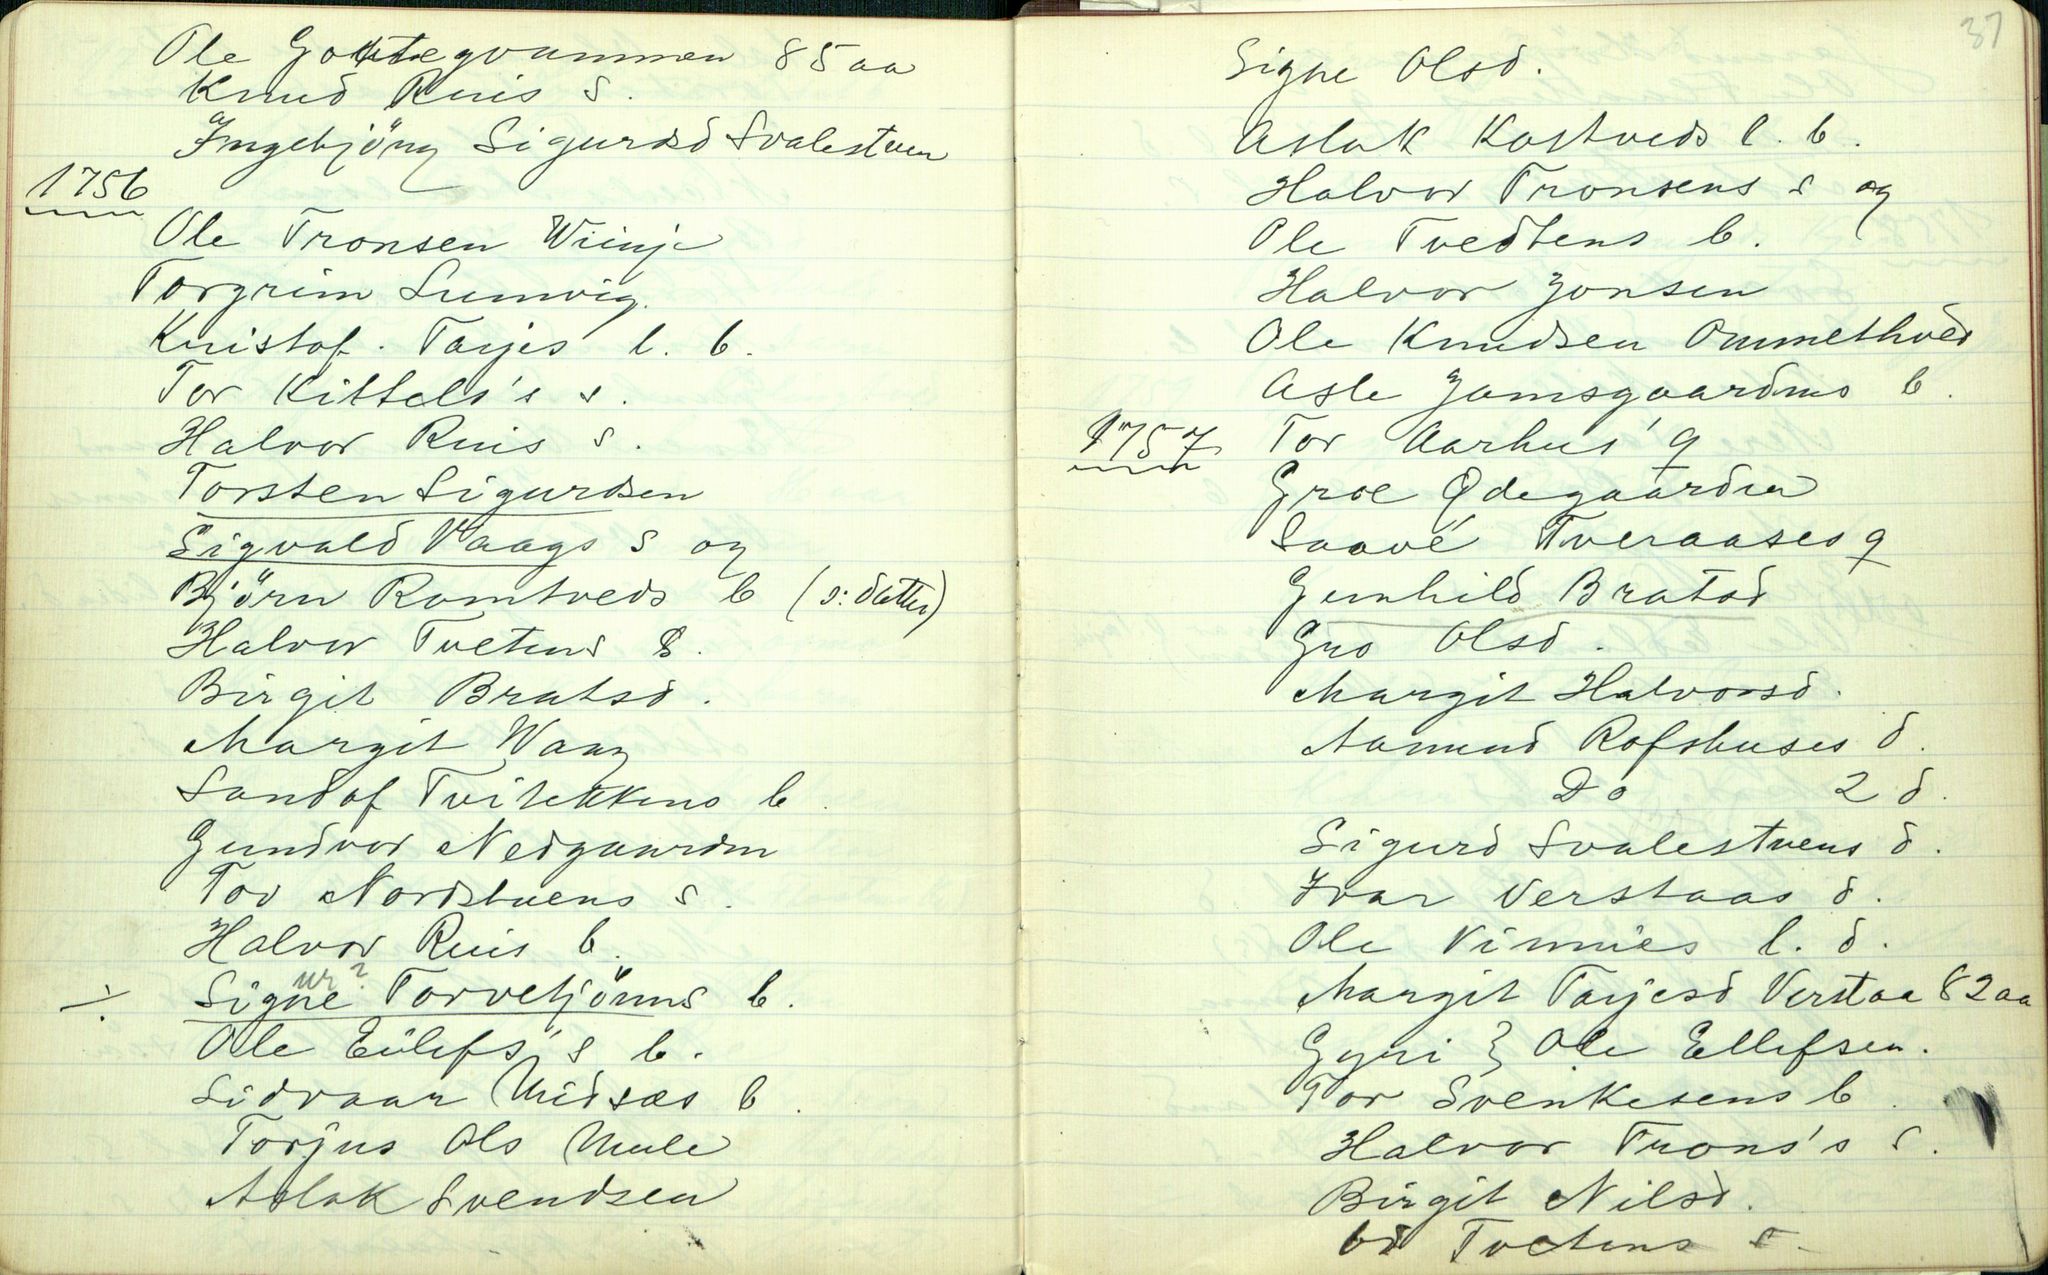 Ole Gottegvammen 85 aa
Knud Ruis s.
Ingebjörg Sigurdsd Svalestuen
1756
Ole Tronsen Wiinje
Torgrim Lumvig.
Kristof. Tarjes l. b.
Tor Kittels's s.
Halvor Ruis s.
Torsten Sigurdsen
Sigvald Vaags s og
Björn Romtveds b (ɔ: datter)
Halvor Tvetens s.
Birgit Bratsd.
Margit Waag
Sandof Tvitekkens b.
Gundvor Nedgaarden
Tov Nordstuens s.
Halvor Ruis b.
÷ Signe Torvetjönns b.
ur?
Ole Eilefs's b.
Sidvaar Midsæs b.
Torjus Ols Mule
Aslak Svendsen
37
Signe Olsd.
Aslak Kostveds l. b.
Halvor Tronsens s og
Ole Tvedtens b.
Halvor Jonsen
Ole Knudsen Ommethved
Asle Jamsgaardens b.
1757 Tor Aarhus' q
Groe Ødegaarden
Saavé Tveraases q
Gunhild Bratsd
Gro Olsd.
Margit Halvorsd.
Aamund Rofshuses d.
Do 2 d.
Sigurd Svalestuens d.
Ivar Verstaas d.
Ole Vinnies l. d.
Margit Tarjesd Verstaa 82 aa
Gyri } Ole Ellefsen.
Tor Svenkesens b.
Halvor Trons's s.
Birgit Nilsd.
Tvetens s.